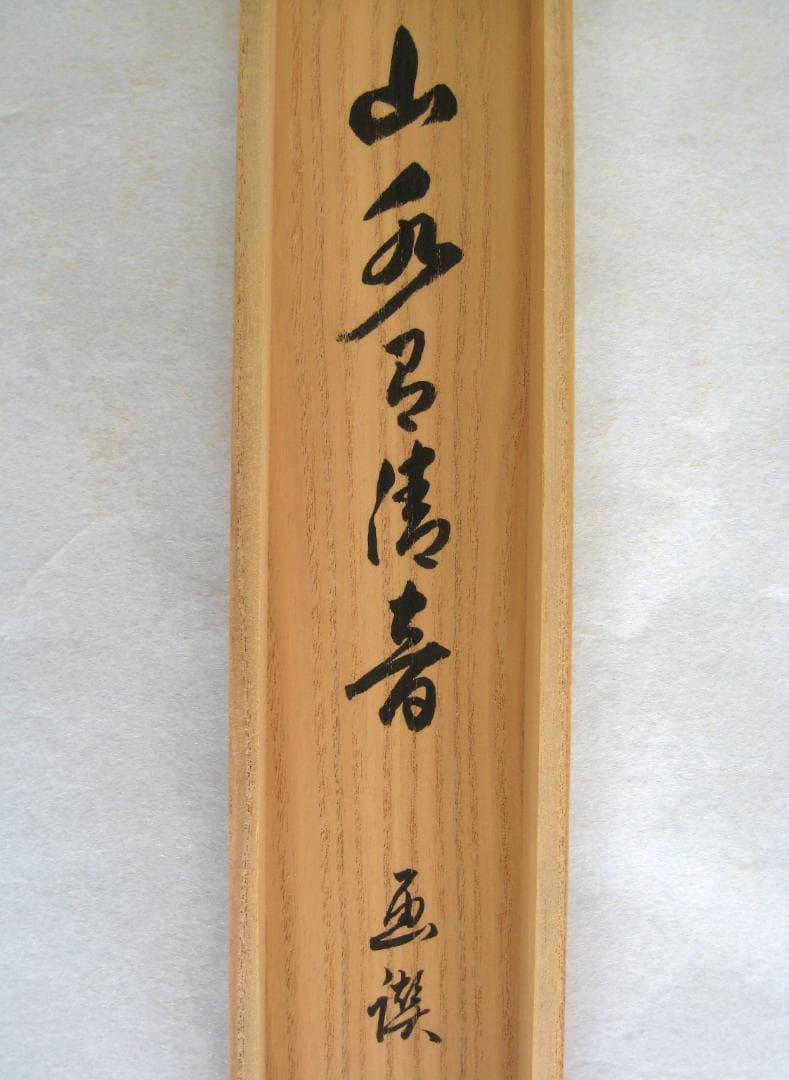 山水有清音
画讃